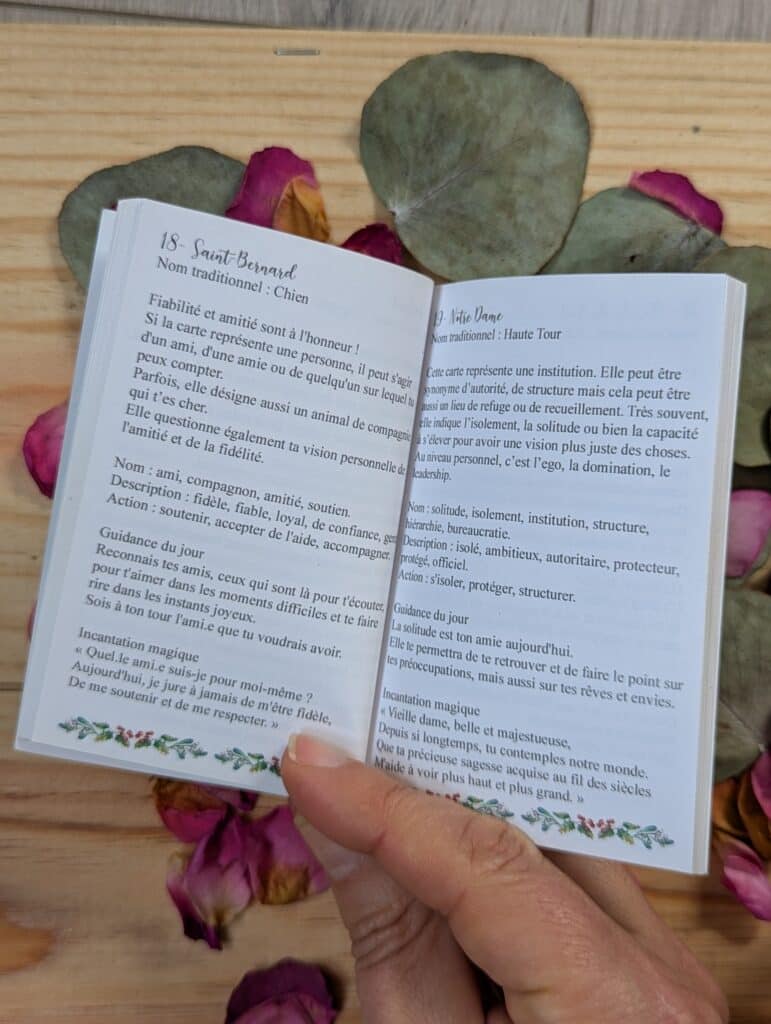 18- Saint-Bernard
Nom traditionnel : Chien
Fiabilité et amitié sont à l'honneur !
Si la carte représente une personne, il peut s'agir
d'un ami, d'une amie ou de quelqu'un sur lequel tu
peux compter.
Parfois, elle désigne aussi un animal de compagnie
qui t'es cher.
Elle questionne également ta vision personnelle de
l'amitié et de la fidélité.
Nom : ami, compagnon, amitié, soutien.
Description : fidèle, fiable, loyal, de confiance,
Action : soutenir, accepter de l'aide, accompagner.
Guidance du jour
Reconnais tes amis, ceux qui sont là pour t'écouter,
pour t'aimer dans les moments difficiles et te faire
rire dans les instants joyeux.
Sois à ton tour l'ami.e que tu voudrais avoir.
Incantation magique
« Quel.le ami.e suis-je pour moi-même ?
Aujourd'hui, je jure à jamais de m'être fidèle,
De me soutenir et de me respecter. »
19- Notre Dame
Nom traditionnel : Haute Tour
Cette carte représente une institution. Elle peut être
synonyme d'autorité, de structure mais cela peut être
aussi un lieu de refuge ou de recueillement. Très souvent,
elle indique l'isolement, la solitude ou bien la capacité
à s'élever pour avoir une vision plus juste des choses.
Au niveau personnel, c'est l'ego, la domination, le
leadership.
Nom : solitude, isolement, institution, structure,
hiérarchie, bureaucratie.
Description : isolé, ambitieux, autoritaire, protecteur,
protégé, officiel.
Action : s'isoler, protéger, structurer.
Guidance du jour
La solitude est ton amie aujourd'hui.
Elle te permettra de te retrouver et de faire le point sur
tes préoccupations, mais aussi sur tes rêves et envies.
Incantation magique
« Vieille dame, belle et majestueuse,
Depuis si longtemps, tu contemples notre monde.
Que ta précieuse sagesse acquise au fil des siècles
M'aide à voir plus haut et plus grand. »